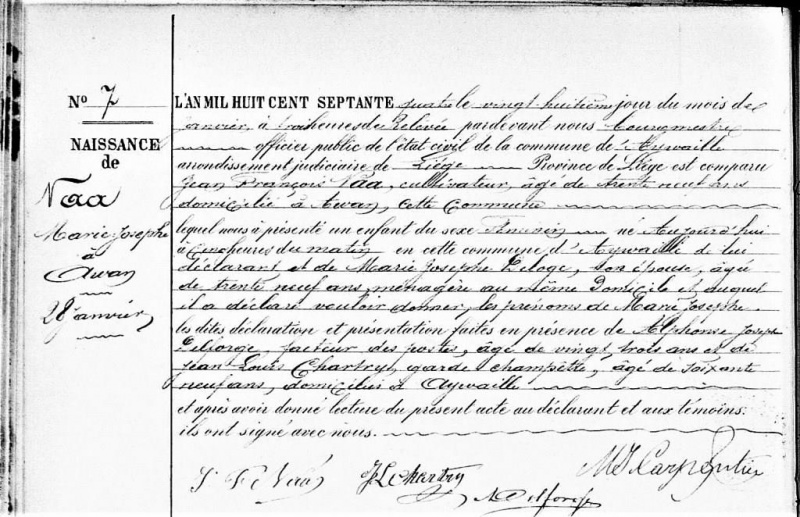 N° 7
NAISSANCE
de
Naa
Marie Josephe
à
Awan
28 janvier
L'AN MIL HUIT CENT SEPTANTE quatre le vingt huitième jour du mois de
janvier, à trois heures de Relevée pardevant nous bourgmestre
officier public de l'état civil de la commune de Aywaille
arrondissement judiciaire de Liége Province de Liége est comparu
Jean François Naa, cultivateur, âgé de trente neuf ans
domicilié à Awan, cette commune
lequel nous a présenté un enfant du sexe Féminin né Aujourd'hui
à cinq heures du matin en cette commune d'Aywaille de lui
déclarant et de Marie Josephe Deloge, son épouse, âgée
de trente neuf ans, ménagère au même Domicile et auquel
il a déclaré vouloir donner les prénoms de Marie Josephe
les dites déclaration et présentation faites en présence de Alphonse Joseph
Delforge, facteur des postes, âgé de vingt trois ans et de
Jean Louis Chartry, garde champêtre, âgé de soixante
neuf ans, domiciliés à Aywaille
et après avoir donné lecture du présent acte au déclarant et aux témoins.
ils ont signé avec nous.
J. F. Naa JL Chartry MJ Carpentier
A Delforge